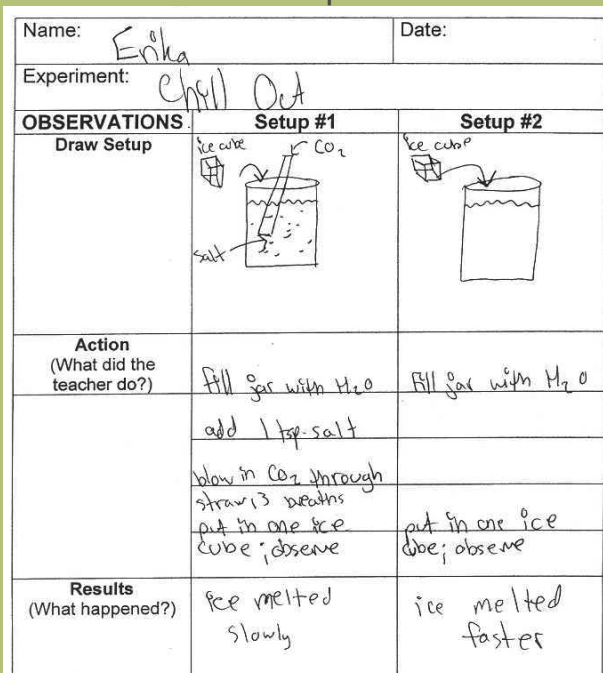 Name: Erika
Date:
Experiment: Chill Out
OBSERVATIONS
Setup #1
Setup #2
Draw Setup
ice cube
CO2
salt
ice cube
Action
(What did the
teacher do?)
fill jar with H2O
add 1 tsp. salt
blow in CO2 through
straw, 3 breaths
put in one ice
cube; observe
fill jar with H2O
put in one ice
cube; observe
Results
(What happened?)
ice melted
slowly
ice melted
faster